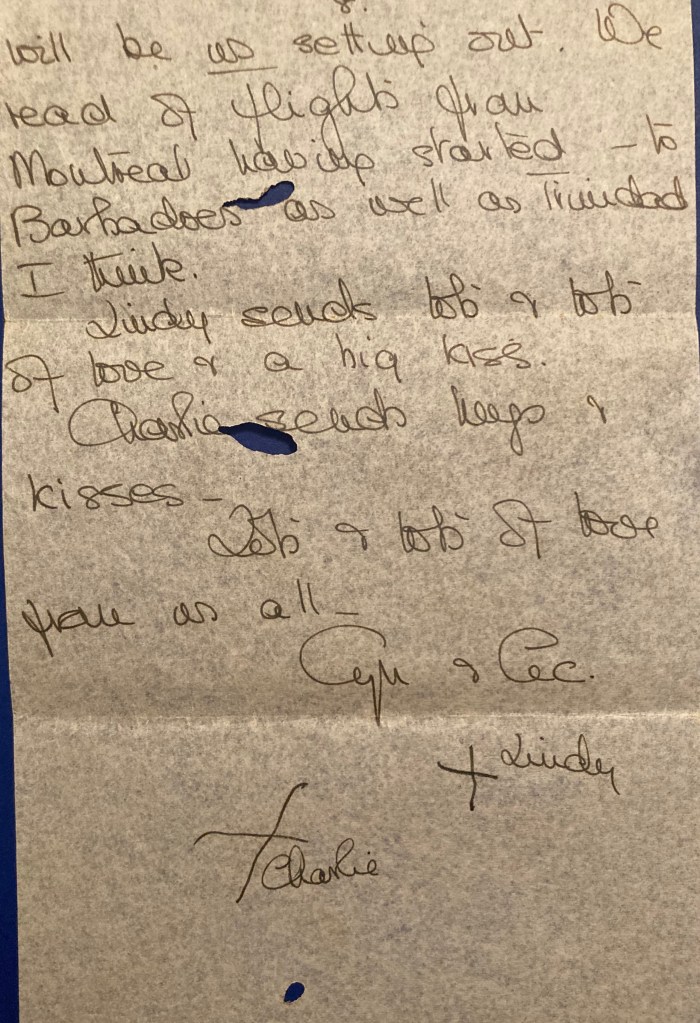 8.
will be us setting out. We
read of flights from
Montreal having started - to
Barbadoes as well as Trinidad
I think.
Lindy sends lots & lots
of love & a big kiss.
Charlie sends hugs &
kisses -
Lots & lots of love
from us all -
& Cec.
+ Lindy
+ Charlie